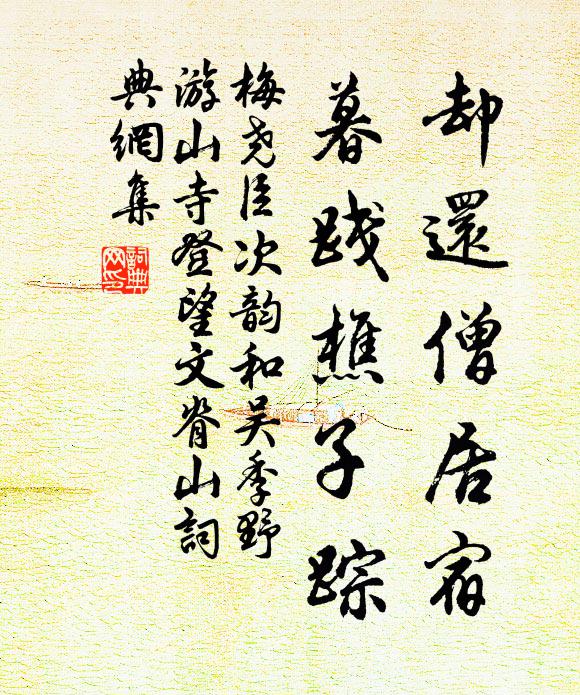 却還僧居宿
暮踐樵子踪
梅堯臣次韵和吴季野
游山寺登望文脊山詞
典網集
詞典
网印